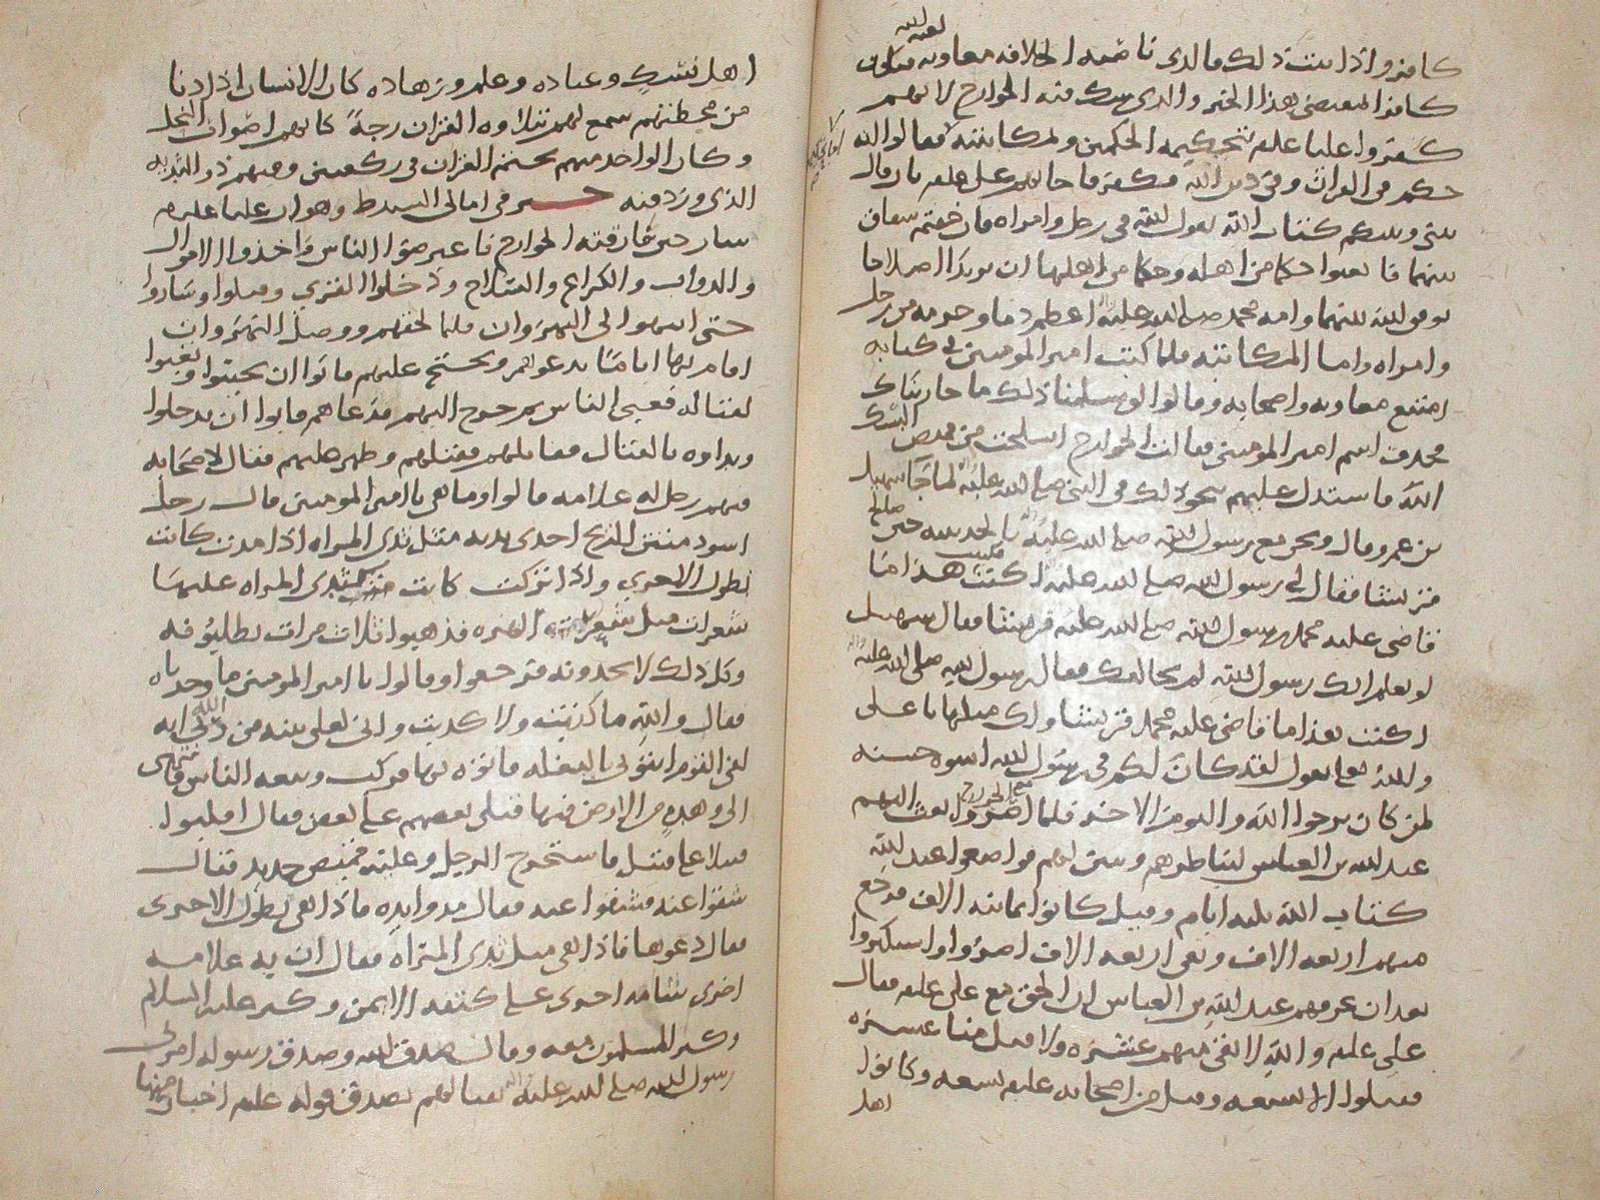 لعنه الله
كافر واذا ثبت ذلك فالذي ناصبه الخلافه معاويه
كافر المقتضي بهذا الخبر والذي شك فيه الخوارج لانهم
كفروا عليا عليه بتحكيمه الحكمين ولمكاتبته فقالوا الله
حكم في التراث وفي دين الله فكفر فاحابهم على عليه بان قال
بيني وبينكم كتاب الله يقول الله في رجل وامراه فان خفتم شقاق
بينهما فابعثوا حكما من اهله وحكما من اهلها ان يريدا اصلاحا
يوفق الله بينهما وامه محمد صلى الله عليه اعظم دما وحرمه من رجل
وامراه واما المكاتبه فلما كتب امير المومنين في كتابه
امتنع معاويه واصحابه وقالوا لو سلمنا ذلك ما حاربناك
فحذف اسم امير المومنين فقالت الخوارج انسلخت من قميص البسك
الله فاستدل عليهم بنحو ذلك في النبي صلى الله عليه لما جا سهيل
بن عمرو قال ونحن مع رسول الله صلى الله عليه بالحديبيه حين صالح
قريشا فقال لي رسول الله صلى الله عليه اكتب فكتبت هذا ما
قاضى عليه محمد رسول الله صلى الله عليه قريشا فقال سهيل
لو نعلم انك رسول الله لم نخالفك فقال رسول الله صلى الله عليه
اكتب هذا ما قاضى عليه محمد قريشا ولك مثلها يا على
والله تعالى يقول لقد كان لكم في رسول الله اسوه حسنه
لمن كان يرجوا الله واليوم الاخر فلما اصروا بعث اليهم
عبد الله بن العباس ليناظرهم وبين لهم فواضعوا عبد الله
كتاب الله ثلثه ايام وقيل كانوا ثمانيه الاف فرجع
منهم اربعه الاف وبقي اربعه الاف اصروا واستكبروا
بعد ان عرفهم عبد الله بن العباس ان الحق مع علي عليه فقال
علي عليه والله لا يبقى منهم عشره ولا يقتل منا عشره
فقتلوا الا تسعه وقتل من اصحابه عليه تسعه وكانوا
اهل
اهل نسك وعباده وعلم وزهاده كان الانسان اذا دنا
من محطتهم سمع لهم بتلاوه القران رجة كانهم اصوات النحل
وكان الواحد منهم يختم القران في ركعتين ومنهم ذو الثديه
الذي ورد فيه خبر في امالي السيد ط وهو ان عليا عليه
سار حين فارقته الخوارج فاعترضوا الناس واخذوا الاموال
والدواب والكراع والسلاح ودخلوا القرى وقتلوا وساروا
حتى انتهوا الى النهروان فلما لحقهم ووصل النهروان
اقام بها اياما يدعوهم ويحتج عليهم فابوا ان يجيبوا وتعبوا
لقتاله فعبى الناس ثم خرج اليهم فدعاهم فابوا ان يدخلوا
وبداوه بالقتال فقاتلهم فقتلهم وظهر عليهم فقال لاصحابه
فيهم رجل له علامه قالوا وما هي يا امير المومنين قال رجل
اسود منتن الريح احدى يديه مثل ثدي المراه اذا مدت كانت
بطول الاخرى واذا تركت كانت كثدي المراه عليها
شعرات مثل شعرات الهره فذهبوا ثلاث مرات يطلبونه
وكل ذلك لا يجدونه فرجعوا وقالوا يا امير المومنين ما وجدناه
فقال والله ما كذبت ولا كذبت واني لعلى بينه من ربي انه
لفي القوم ايتوني بالبغله فاتوه بها فركب وتبعه الناس فانتهى
الى وهده من الارض فيها قتلى بعضهم على بعض فقال اقلبوا
قتيلا على قتيل فاستخرج الرجل وعليه قميص جديد فقال
شقوا عنه فشقوا عنه فقال مدوا يده فاذا هي بطول الاخرى
فقال دعوها فاذا هي مثل ثدي المراه فقال ان به علامه
اخرى شامه احرى على كتفه الايمن وكبر عليه السلام
وكبر المسلمون معه وقال صدق الله وصدق رسوله امرني
رسول الله صلى الله عليه بقتالهم بصدق قوله عليه